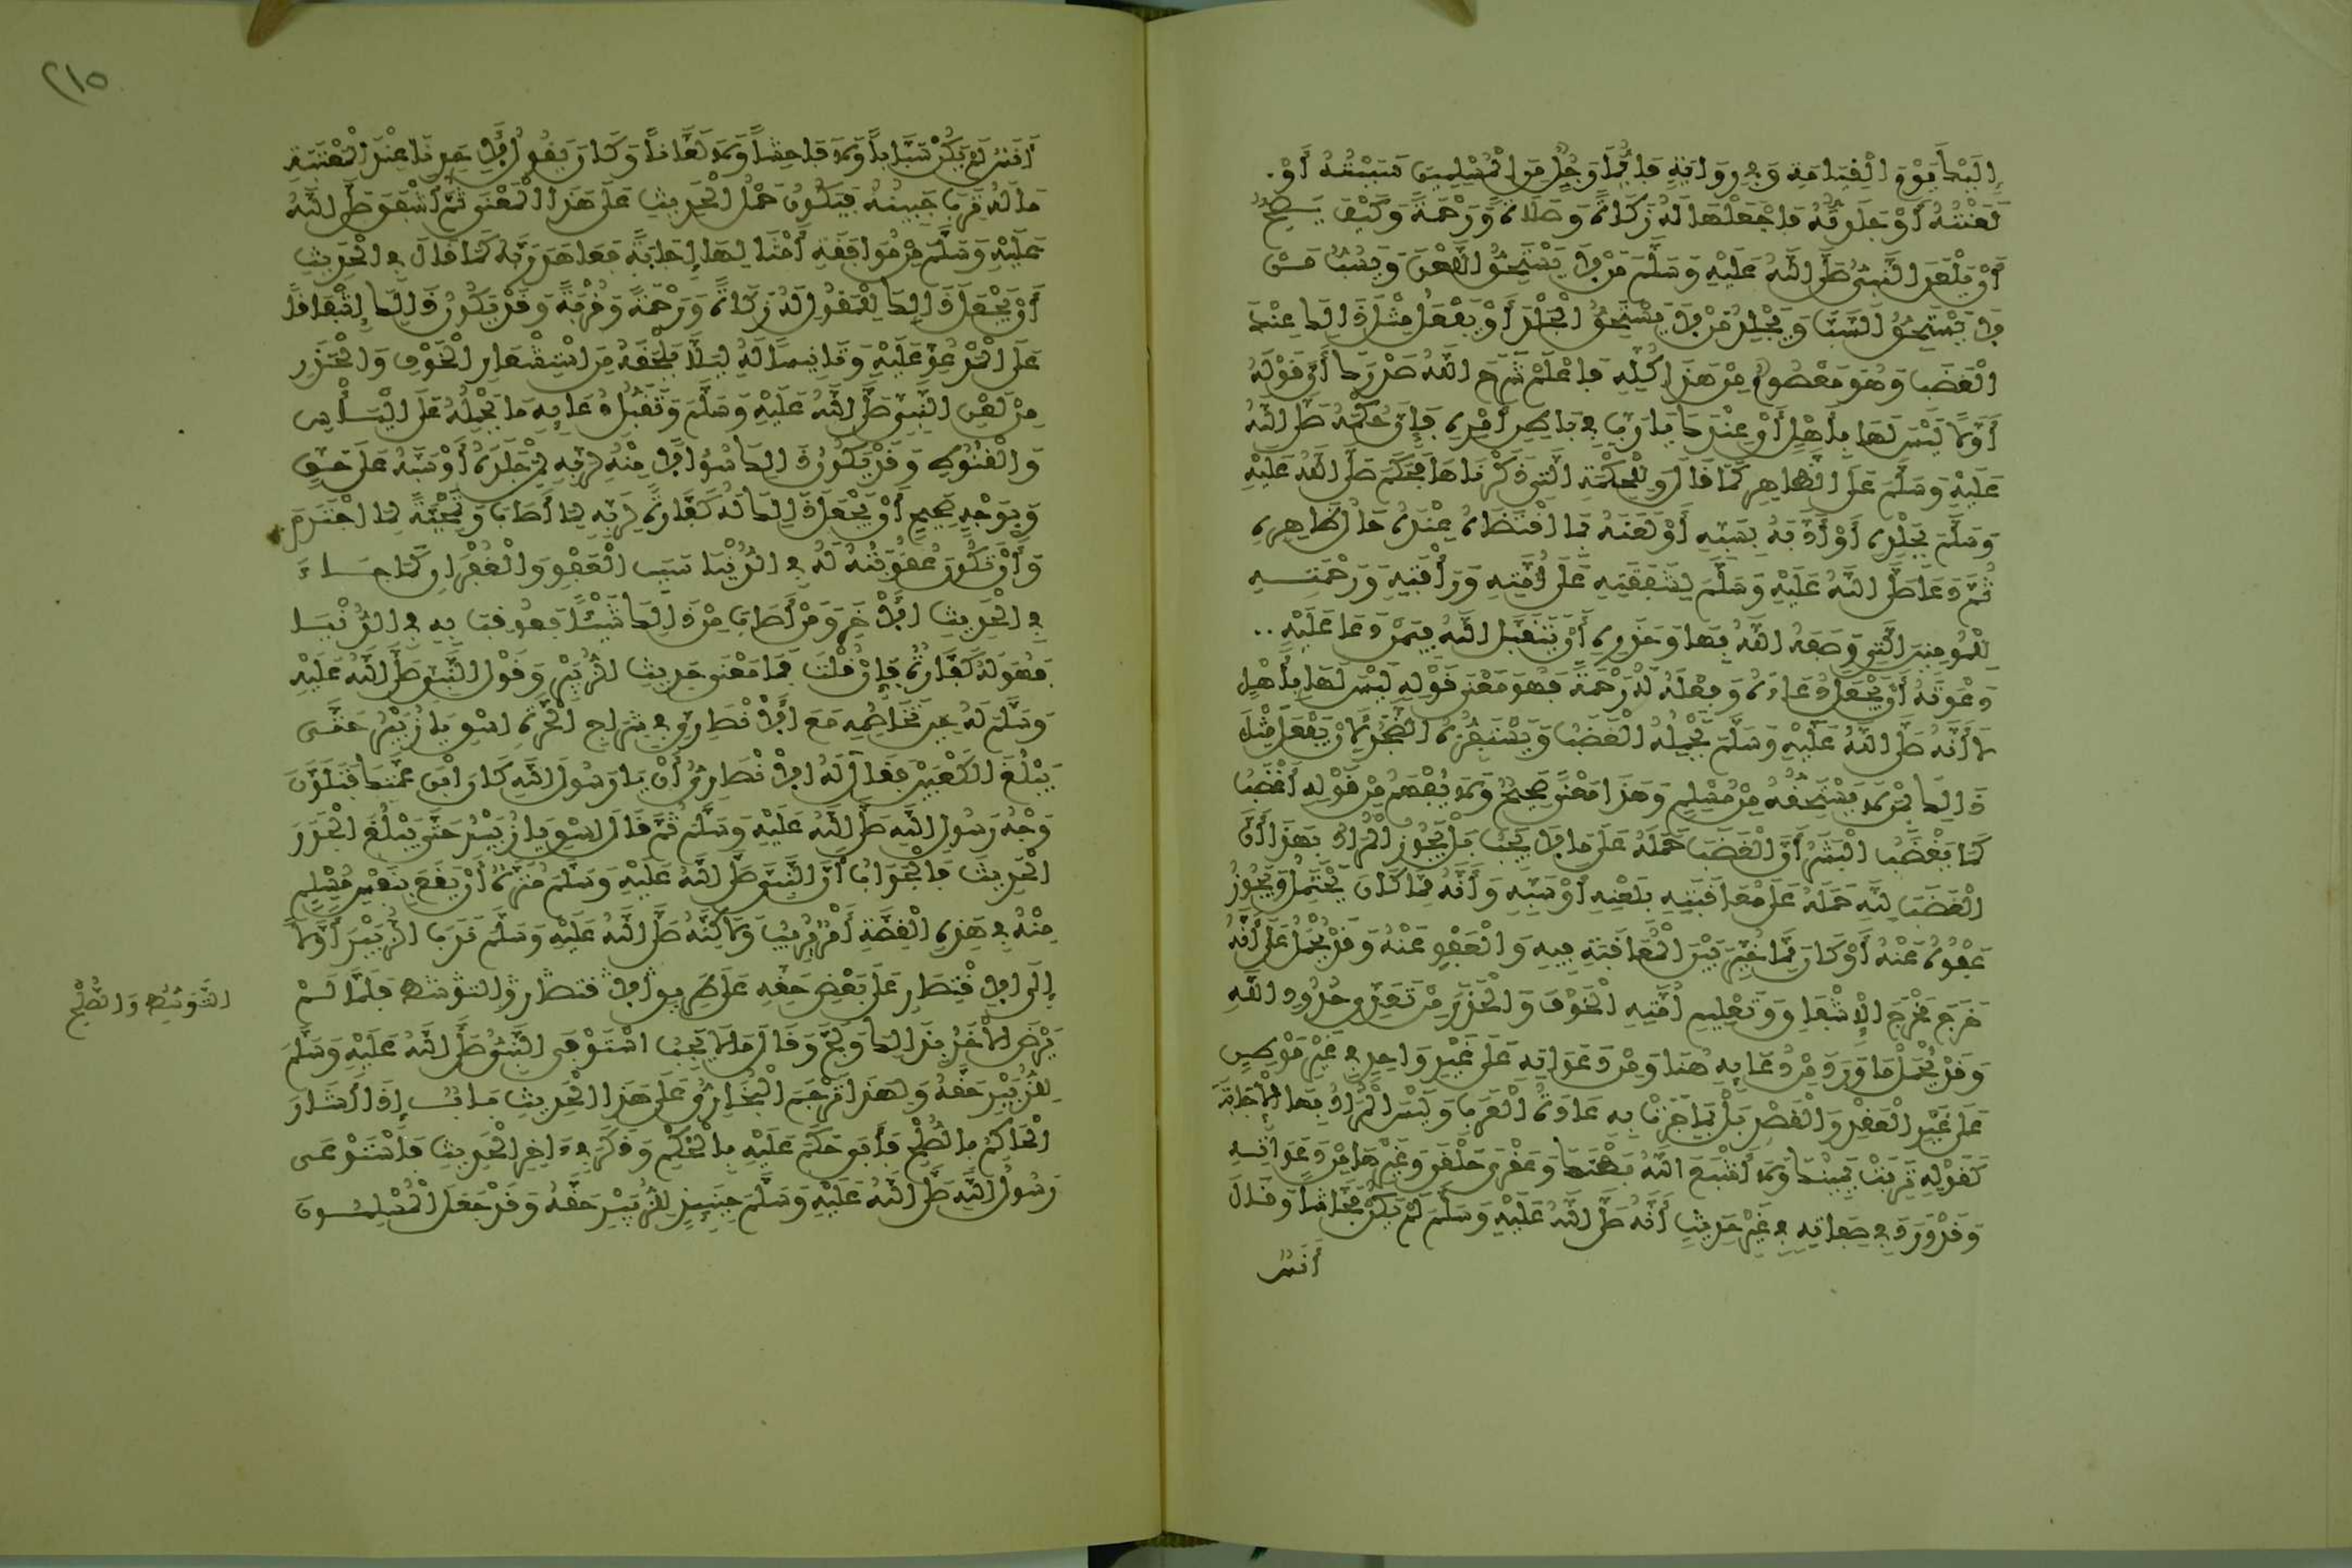 إِلَيْكَ يَوْمَ الْقِيَامَةِ وَفِي رِوَايَةٍ فَأَيُّمَا رَجُلٍ مِنَ الْمُسْلِمِينَ سَبَبْتُهُ أَوْ
لَعَنْتُهُ أَوْ جَلَدتُّهُ فَاجْعَلْهَا لَهُ زَكَاةً وَصَلَاةً وَرَحْمَةً وَكَيْفَ يَصِحُّ
أَنْ يَلْعَنَ النَّبِيُّ صَلَّى اللَّهُ عَلَيْهِ وَسَلَّمَ مَنْ لَا يَسْتَحِقُّ اللَّعْنَ وَيَسُبُّ مَنْ
لَا يَسْتَحِقُّ السَّبَّ وَيَجْلِدُ مَنْ لَا يَسْتَحِقُّ الْجَلْدَ أَوْ يَفْعَلُ مِثْلَ ذَلِكَ عِنْدَ
الْغَضَبِ وَهُوَ مَعْصُومٌ مِنْ هَذَا كُلِّهِ فَاعْلَمْ شَرَحَ اللَّهُ صَدْرَكَ أَنَّ قَوْلَهُ
أَوَّلًا لَيْسَ لَهَا بِأَهْلٍ أَيْ عِنْدَكَ يَا رَبِّ فِي بَاطِنِ أَمْرِهِ فَإِنَّ حُكْمَهُ صَلَّى اللَّهُ
عَلَيْهِ وَسَلَّمَ عَلَى الظَّاهِرِ كَمَا قَالَ وَلِلْحِكْمَةِ الَّتِي ذَكَرْنَاهَا فَحَكَمَ صَلَّى اللَّهُ عَلَيْهِ
وَسَلَّمَ بِجَلْدِهِ أَوْ أَدَّبَهُ بِسَبِّهِ أَوْ لَعَنَهُ بِمَا اقْتَضَاهُ عِنْدَهُ حَالُ ظَاهِرِهِ
ثُمَّ دَعَا صَلَّى اللَّهُ عَلَيْهِ وَسَلَّمَ لِشَفَقَتِهِ عَلَى أُمَّتِهِ وَرَأْفَتِهِ وَرَحْمَتِهِ
لِلْمُؤْمِنِينَ الَّتِي وَصَفَهُ اللَّهُ بِهَا وَحَذَرِهِ أَنْ يَتَقَبَّلَ اللَّهُ فِيمَنْ دَعَا عَلَيْهِ
دَعْوَتَهُ أَنْ يَجْعَلَ دُعَاءَهُ وَفِعْلَهُ لَهُ رَحْمَةً فَهُوَ مَعْنَى قَوْلِهِ لَيْسَ لَهَا بِأَهْلٍ
لَا أَنَّهُ صَلَّى اللَّهُ عَلَيْهِ وَسَلَّمَ يَحْمِلُهُ الْغَضَبُ وَيَسْتَفِزُّهُ الضَّجَرُ لِأَنْ يَفْعَلَ مِثْلَ
ذَلِكَ بِمَنْ لَا يَسْتَحِقُّهُ مِنْ مُسْلِمٍ وَهَذَا مَعْنًى صَحِيحٌ وَلَا يُفْهَمُ مِنْ قَوْلِهِ أَغْضَبُ
كَمَا يَغْضَبُ الْبَشَرُ أَنَّ الْغَضَبَ حَمَلَهُ عَلَى مَا لَا يَجِبُ بَلْ يَجُوزُ الْمُرَادُ بِهَذَا أَنَّ
الْغَضَبَ لِلَّهِ حَمَلَهُ عَلَى مُعَاقَبَتِهِ بِلَعْنِهِ أَوْ سَبِّهِ وَأَنَّهُ مِمَّا كَانَ يَحْتَمِلُ وَيَجُوزُ
عَفْوُهُ عَنْهُ أَوْ كَانَ مِمَّا خُيِّرَ بَيْنَ الْمُعَاقَبَةِ فِيهِ وَالْعَفْوِ عَنْهُ وَقَدْ يُحْمَلُ عَلَى أَنَّهُ
خَرَجَ مَخْرَجَ الْإِشْفَاقِ وَتَعْلِيمِ أُمَّتِهِ الْخَوْفَ وَالْحَذَرَ مِنْ تَعَدِّي حُدُودِ اللَّهِ
وَقَدْ يُحْمَلُ مَا وَرَدَ مِنْ دُعَائِهِ هُنَا وَمِنْ دَعَوَاتِهِ عَلَى غَيْرِ وَاحِدٍ فِي غَيْرِ مَوْطِنٍ
عَلَى غَيْرِ الْعَقْدِ وَالْقَصْدِ بَلْ بِمَا جَرَتْ بِهِ عَادَةُ الْعَرَبِ وَلَيْسَ الْمُرَادُ بِهَا الْإِجَابَةَ
كَقَوْلِهِ تَرِبَتْ يَمِينُكَ وَلَا أَشْبَعَ اللَّهُ بَطْنَكَ وَعَقْرَى حَلْقَى وَغَيْرِهَا مِنْ دَعَوَاتِهِ
وَقَدْ وَرَدَ فِي صِفَاتِهِ فِي غَيْرِ حَدِيثٍ أَنَّهُ صَلَّى اللَّهُ عَلَيْهِ وَسَلَّمَ لَمْ يَكُنْ فَحَّاشًا وَقَالَ
أَنَسٌ
٢١٥
أَنَسٌ لَمْ يَكُنْ سَبَّابًا وَلَا فَاحِشًا وَلَا لَعَّانًا وَكَانَ يَقُولُ لِأَحَدِنَا عِنْدَ الْمَعْتَبَةِ
مَا لَهُ تَرِبَ جَبِينُهُ فَيَكُونُ حَمْلُ الْحَدِيثِ عَلَى هَذَا الْمَعْنَى ثُمَّ أَشْفَقَ صَلَّى اللَّهُ
عَلَيْهِ وَسَلَّمَ مِنْ مُوَافَقَةِ أَمْثَالِهَا إِجَابَةً فَعَاهَدَ رَبَّهُ كَمَا قَالَ فِي الْحَدِيثِ
أَنْ يَجْعَلَ ذَلِكَ لِلْمَقُولِ لَهُ زَكَاةً وَرَحْمَةً وَقُرْبَةً وَقَدْ يَكُونُ ذَلِكَ إِشْفَاقًا
عَلَى الْمَدْعُوِّ عَلَيْهِ وَتَأْنِيسًا لَهُ لِيَلَّا يَلْحَقَهُ مِنَ اسْتِشْعَارِ الْخَوْفِ وَالْحَذَرِ
مِنْ لَعْنِ النَّبِيِّ صَلَّى اللَّهُ عَلَيْهِ وَسَلَّمَ وَتَقَبُّلِ دُعَائِهِ مَا يَحْمِلُهُ عَلَى الْيَأْسِ
وَالْقُنُوطِ وَقَدْ يَكُونُ ذَلِكَ سُؤَالًا مِنْهُ لِرَبِّهِ لِمَنْ جَلَدَهُ أَوْ سَبَّهُ عَلَى حَقٍّ
وَبِوَجْهٍ صَحِيحٍ أَنْ يَجْعَلَ ذَلِكَ لَهُ كَفَّارَةً لِمَا أَصَابَ وَتَمْحِيَةً لِمَا اجْتَرَمَ
وَأَنْ تَكُونَ عُقُوبَتُهُ لَهُ فِي الدُّنْيَا سَبَبَ الْعَفْوِ وَالْغُفْرَانِ كَمَا جَاءَ
فِي الْحَدِيثِ الْآخَرِ وَمَنْ أَصَابَ مِنْ ذَلِكَ شَيْئًا فَعُوقِبَ بِهِ فِي الدُّنْيَا
فَهُوَ لَهُ كَفَّارَةٌ فَإِنْ قُلْتَ فَمَا مَعْنَى حَدِيثِ الزُّبَيْرِ وَقَوْلِ النَّبِيِّ صَلَّى اللَّهُ عَلَيْهِ
وَسَلَّمَ لَهُ حِينَ تَخَاصُمِهِ مَعَ الْأَنْصَارِيِّ فِي شِرَاجِ الْحَرَّةِ اسْقِ يَا زُبَيْرُ حَتَّى
يَبْلُغَ الْكَعْبَيْنِ فَقَالَ لَهُ الْأَنْصَارِيُّ أَنْ يَا رَسُولَ اللَّهِ كَانَ ابْنَ عَمَّتِكَ فَتَلَوَّنَ
وَجْهُ رَسُولِ اللَّهِ صَلَّى اللَّهُ عَلَيْهِ وَسَلَّمَ ثُمَّ قَالَ اسْقِ يَا زُبَيْرُ حَتَّى يَبْلُغَ الْجَدْرَ
الْحَدِيثَ فَالْجَوَابُ أَنَّ النَّبِيَّ صَلَّى اللَّهُ عَلَيْهِ وَسَلَّمَ مُنَزَّهٌ أَنْ يَقَعَ بِنَفْسِ مُسْلِمٍ
مِنْهُ فِي هَذِهِ الْقِصَّةِ أَمْرٌ مُرِيبٌ وَلَاكِنَّهُ صَلَّى اللَّهُ عَلَيْهِ وَسَلَّمَ نَدَبَ الزُّبَيْرَ أَوَّلًا
إِلَى الِاقْتِصَارِ عَلَى بَعْضِ حَقِّهِ عَلَى طَرِيقِ الِاقْتِصَارِ وَالتَّوَسُّطِ فَلَمَّا لَمْ
يَرْضَ الْآخَرُ بِذَلِكَ وَلَجَّ وَقَالَ مَا لَا يَجِبُ اسْتَوْفَى النَّبِيُّ صَلَّى اللَّهُ عَلَيْهِ وَسَلَّمَ
لِلزُّبَيْرِ حَقَّهُ وَلِهَذَا تَرْجَمَ الْبُخَارِيُّ عَلَى هَذَا الْحَدِيثِ بَابٌ إِذَا أَشَارَ
الْحَاكِمُ بِالصُّلْحِ فَأَبَى حَكَمَ عَلَيْهِ بِالْحُكْمِ وَذَكَرَ فِي آخِرِ الْحَدِيثِ فَاسْتَوْعَى
رَسُولُ اللَّهِ صَلَّى اللَّهُ عَلَيْهِ وَسَلَّمَ حِينَئِذٍ لِلزُّبَيْرِ حَقَّهُ وَقَدْ جَعَلَ الْمُسْلِمُونَ
التَّوَسُّطِ وَالصُّلْحِ